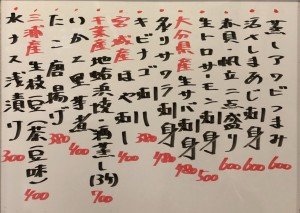 蒸しアワビつまみ 600
活〆しまあじ刺身 600
赤貝・帆立二点盛り 600
生トロサーモン刺身 500
大分県産 刺身 980
キビナゴ刺し 480
宮城産 ほや刺し 400
千葉産 地蛤浜焼・酒蒸し(3ヶ) 700
いかと里芋煮 400
たこ唐揚げ 380
三浦産 生枝豆(茶豆味) 400
水ナス浅漬け 300